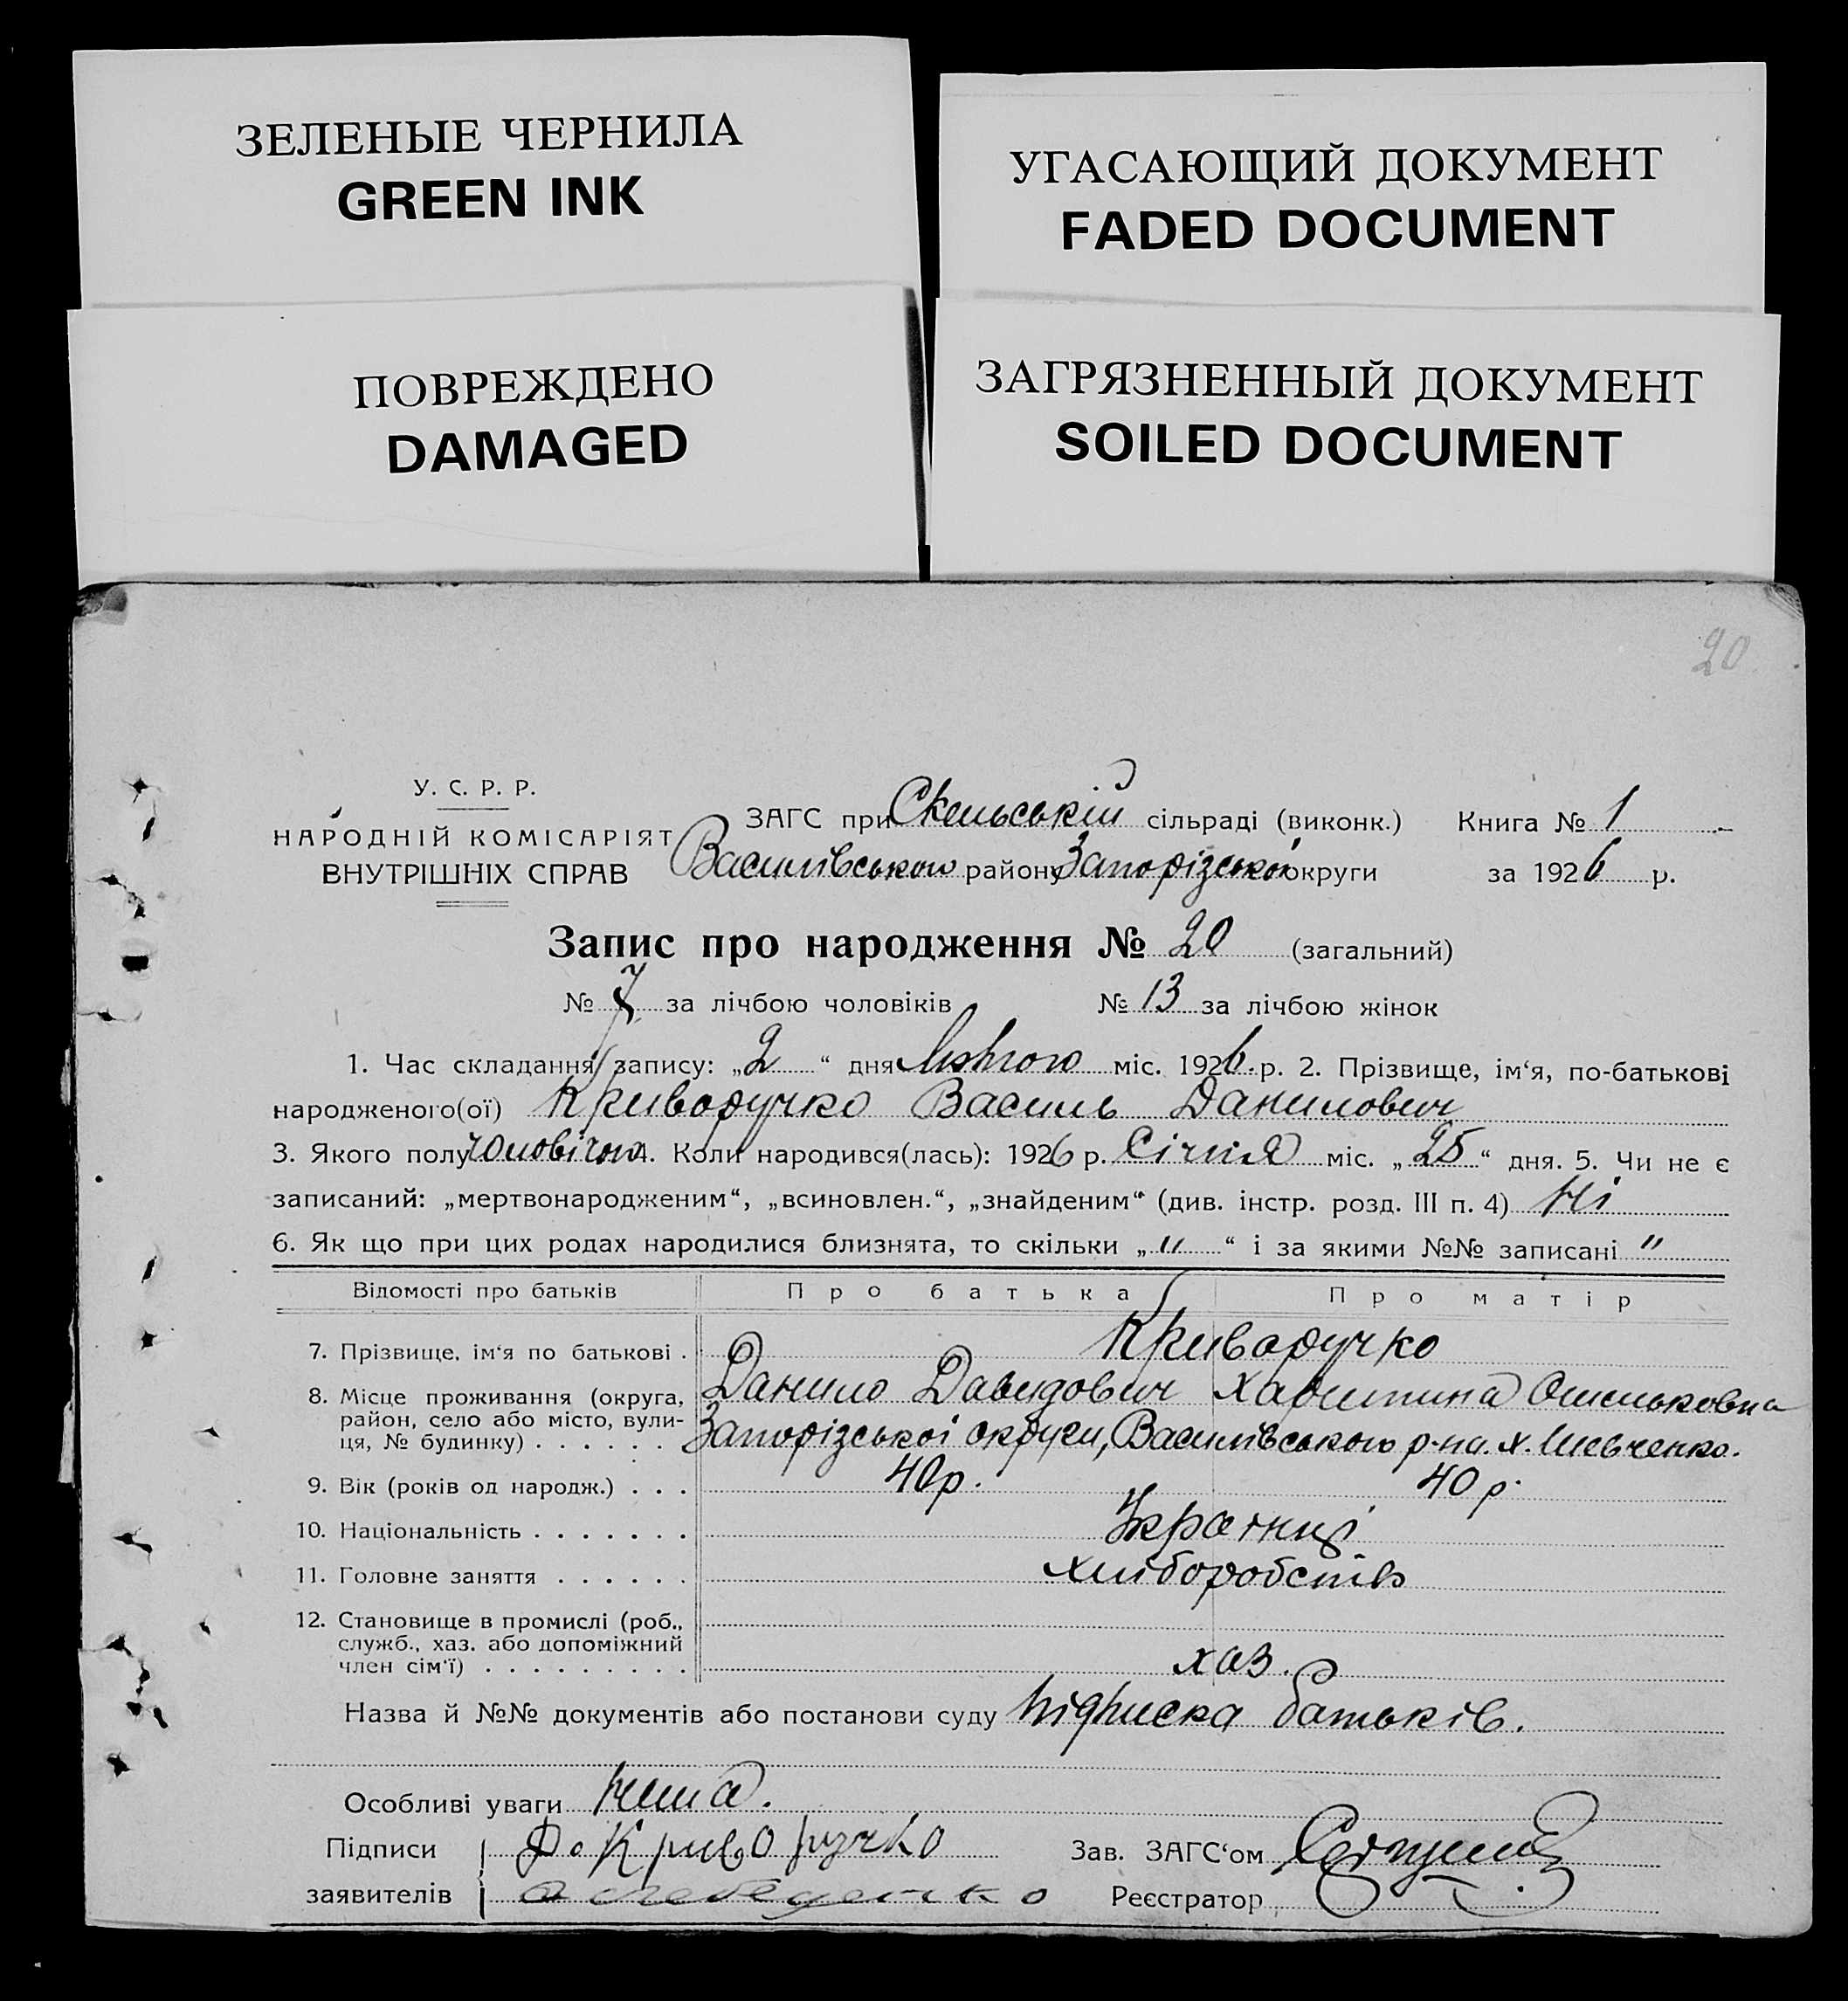 ЗЕЛЕНЫЕ ЧЕРНИЛА
GREEN INK
УГАСАЮЩИЙ ДОКУМЕНТ
FADED DOCUMENT
ПОВРЕЖДЕНО
DAMAGED
ЗАГРЯЗНЕННЫЙ ДОКУМЕНТ
SOILED DOCUMENT
20
У. С. Р. Р.
НАРОДНІЙ КОМІСАРІЯТ
ВНУТРІШНІХ СПРАВ
ЗАГС при Скельській сільраді (виконк.) Книга № 1
Василівського району Запорізької округи за 1926 р.
Запис про народження № 20 (загальний)
№ 7 за лічбою чоловіків № 13 за лічбою жінок
1. Час складання запису: „2“ дня лютого міс. 1926 р. 2. Прізвище, ім‘я, по-батькові
народженого(ої) Криворучко Василь Данилович
3. Якого полу чоловічого 4. Коли народився(лась): 1926 р. Січня міс. „25“ дня. 5. Чи не є
записаний: „мертвонародженим“, „всиновлен.“, „знайденим“ (див. інстр. розд. III п. 4) Ні
6. Як що при цих родах народилися близнята, то скільки „ " “ і за якими №№ записані "
Відомості про батьків Про батька Про матір
7. Прізвище, ім‘я по батькові . Криворучко
Данило Давидович Харитина
8. Місце проживання (округа,
район, село або місто, вули-
ця, № будинку) . . . . . . Запорізької округи, Василівського р-на. х. Шевченко.
9. Вік (років од народж.) . . . 40р. 40 р.
10. Національність . . . . . . . Українці
11. Головне заняття . . . . . . хліборобств
12. Становище в промислі (роб.,
служб., хаз. або допоміжний
член сім‘ї) . . . . . . . . . . хаз.
Назва й №№ документів або постанови суду підписка батьків.
Особливі уваги нема.
Підписи Д. Криворучко Зав. ЗАГС‘ом
заявителів Реєстратор